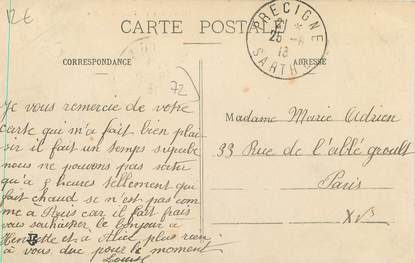 12€
CARTE POSTALE
PRECIGNE
SARTHE
CORRESPONDANCE
ADRESSE
72
Je vous remercie de votre
carte qui m'a fait bien plai-
sir il fait un temps superbe
nous ne pouvons pas sortir
qu'à 8 heures tellement qui
fait chaud se n'est pas com
me a Paris car il fait frais
vous souhaiter le bonjour à
et à plus rien
à vous dire pour le moment
Louise
Madame Marie Adrien
33 Rue de l'abbé groult
Paris
XV